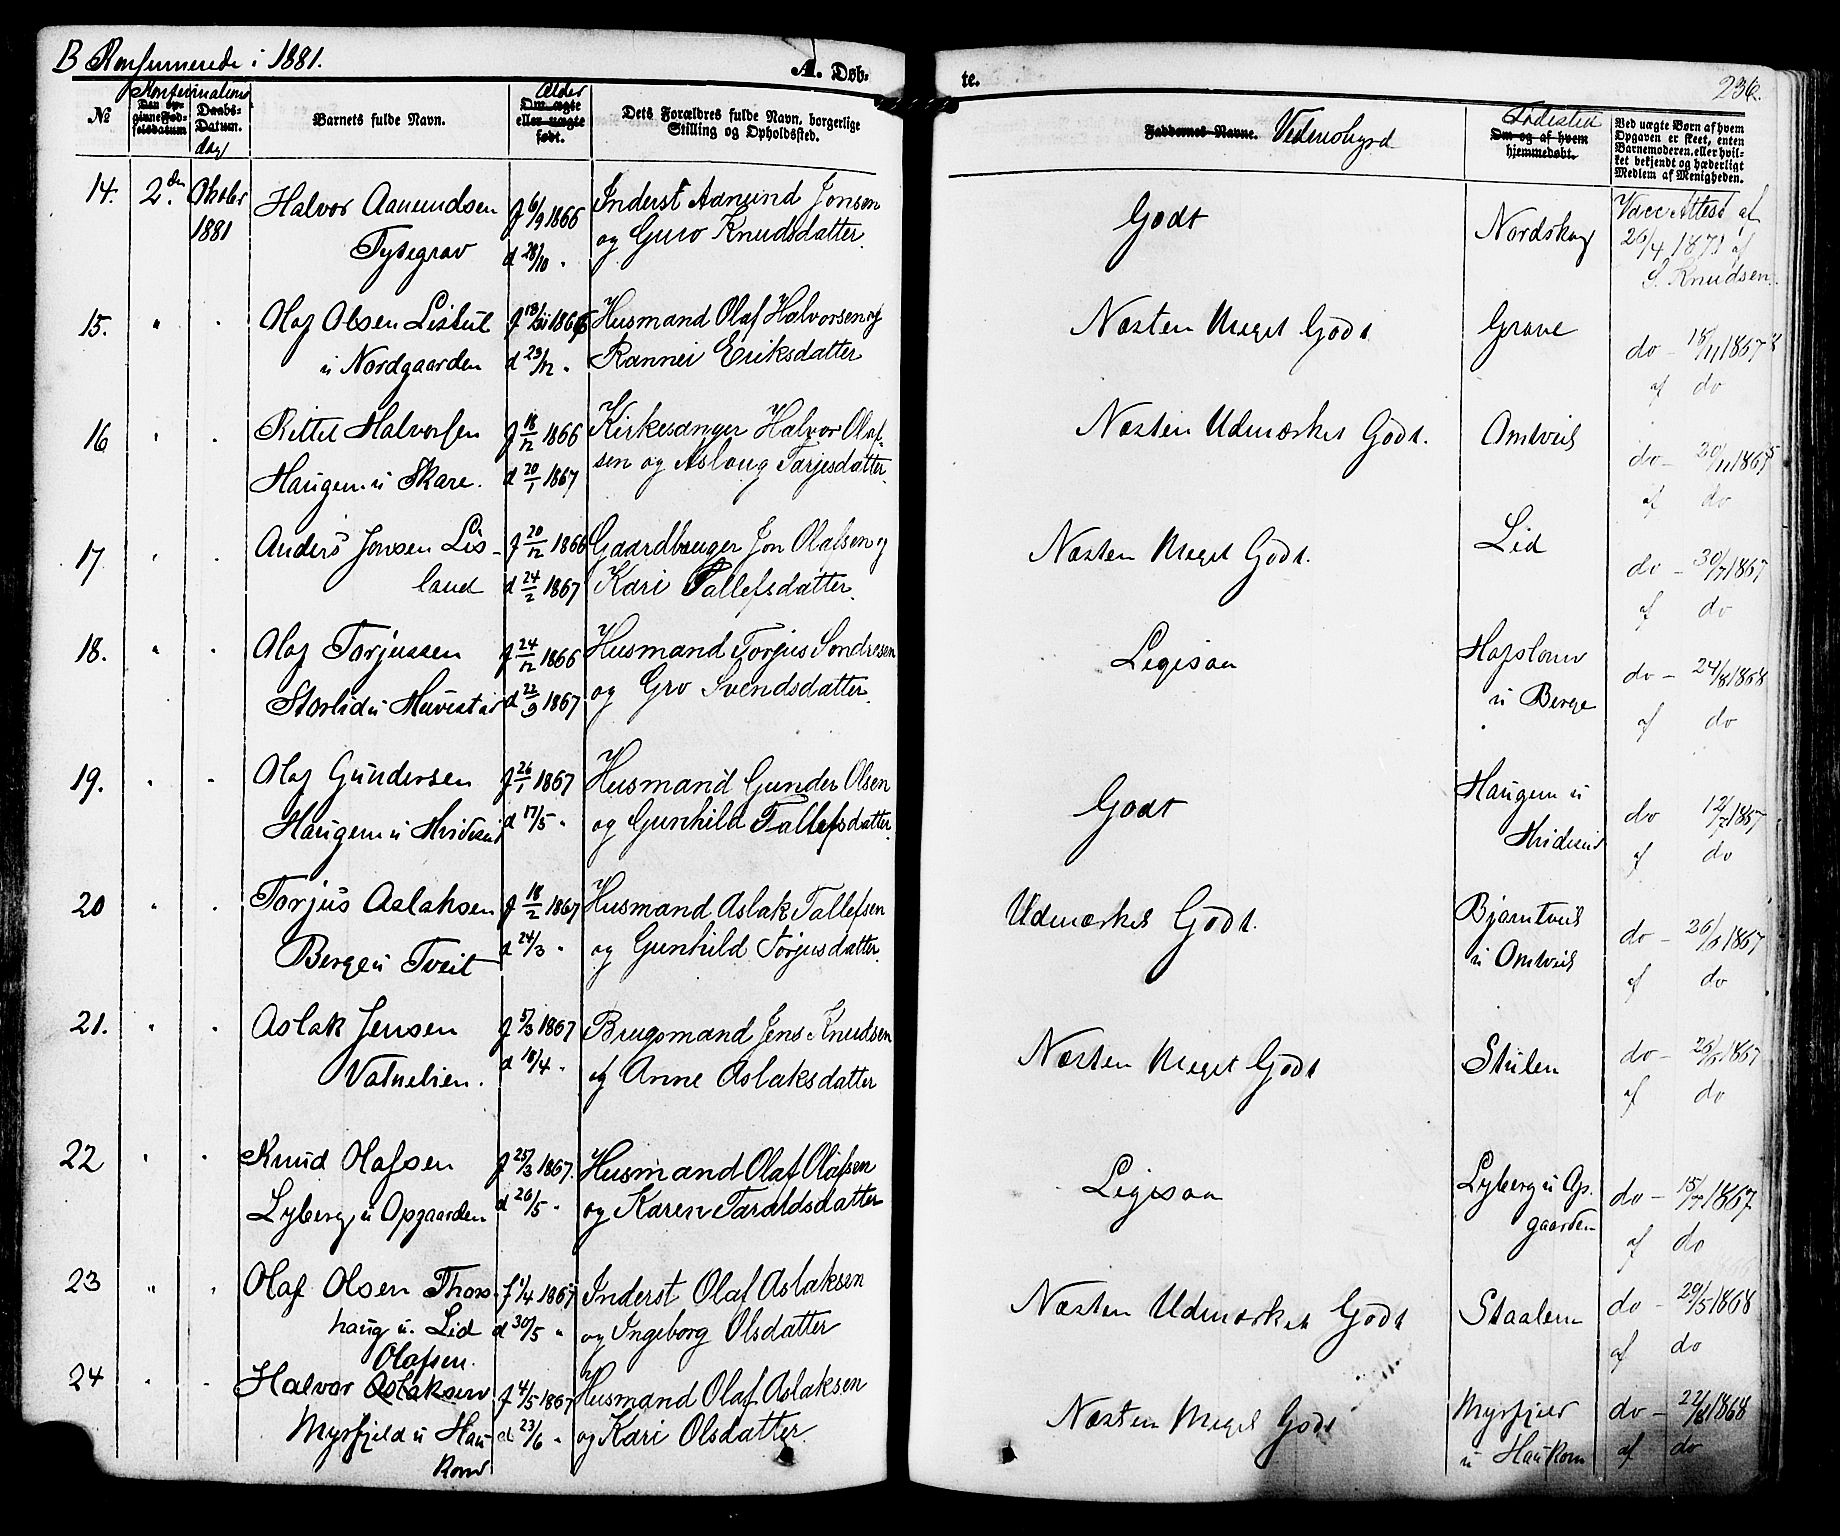 B Konfirmerede i 1881.
A. Døb-
te.
236.
Konfirmations
Alder
Fødested
№
Den op-
ginne Fød-
selsdatum
Daabs-
Datum.
dag
Barnets fulde Navn.
Om ægte
eller uægte
født.
Dets Forældres fulde Navn, borgerlige
Stilling og Opholdssted.
Faddernes Navne. Vidnesbyrd
Om og af hvem
hjemmedøbt.
Ved uægte Børn af hvem
Opgaven er skeet, enten
Barnemoderen eller hvil-
ket bekjendt og hæderligt
Medlem af Menigheden.
14. 2den Oktober Halvor Aanundsen f 6/9 1866 Inderst Aanund Jonsen Godt Nordskog Vacc Attest af
1881 Tytegrav d 28/10 " og Guro Knudsdatter. 26/4 1871 af
S. Knudsen.
15. " " Olaf Olsen Listul f 13/11 1866 Husmand Olaf Halvorsen og Næsten Meget Godt Grave do - 18/11 1867
u Nordgaarden d 23/12 " Rannei Eriksdatter af do
16 " " Kittil Halvorsen f 18/12 1866 Kirkesanger Halvor Olaf- Næsten Udmærket Godt. Omtveit do - 20/11 1867
Haugen u Skare. d 20/1 1867 sen og Aslaug Tarjesdatter. af do
17 " " Anders Jonsen Lis- f 20/12 1866 Gaardbruger Jon Olafsen og Næsten Meget Godt. Lid do - 30/7 1867
land d 24/2 1867 Kari Tallefsdatter. af do
18. " " Olaf Torjussen f 24/12 1866 Husmand Torjus Sondresen Ligesaa Hafsloun do - 24/8 1868
Storlid u d 22/9 1867 og Gro Svendsdatter. u Berge af do
19. " " Olaf Gundersen f 26/1 1867 Husmand Gunder Olsen Godt Haugen u do 12/7 1867
Haugen u Hvideseid d 17/5 " og Gunhild Tallefsdatter. Hvideseid af do
20 " " Torjus Aslaksen f 18/2 1867 Husmand Aslak Tallefsen Udmærket Godt. Bjørntveit do - 26/8 1867
Berge u Tveit d 24/3 " og Gunhild Torjusdatter. u Omtveit af do
21. " " Aslak Jensen f 5/3 1867 Brugsmand Jens Knudsen Næsten Meget Godt Stulen do - 26/8 1867
Vatnelien. d 18/4 " og Anne Aslaksdatter af do
22 " " Knud Olafsen f 25/3 1867. Husmand Olaf Olafsen Ligesaa Lyberg u Op- do - 15/7 1867
Lyberg u Opgaarden d 26/5 " og Karen Taraldsdatter gaarden af do
23 " " Olaf Olsen Thors- f 1/4 1867 Inderst Olaf Aslaksen Næsten Udmærket Godt Staalem do - 29/5 1868
haug u. Lid d 30/5 " og Ingeborg Olsdatter af do
Olafsen.
24 " " Halvor Aslaksen f 4/5 1867 Husmand Olaf Aslaksen Næsten Meget Godt Myrfjeld do - 22/8 1868
Myrfjeld u Hau- d 23/6 " og Kari Olsdatter. u Haukom af do
kom